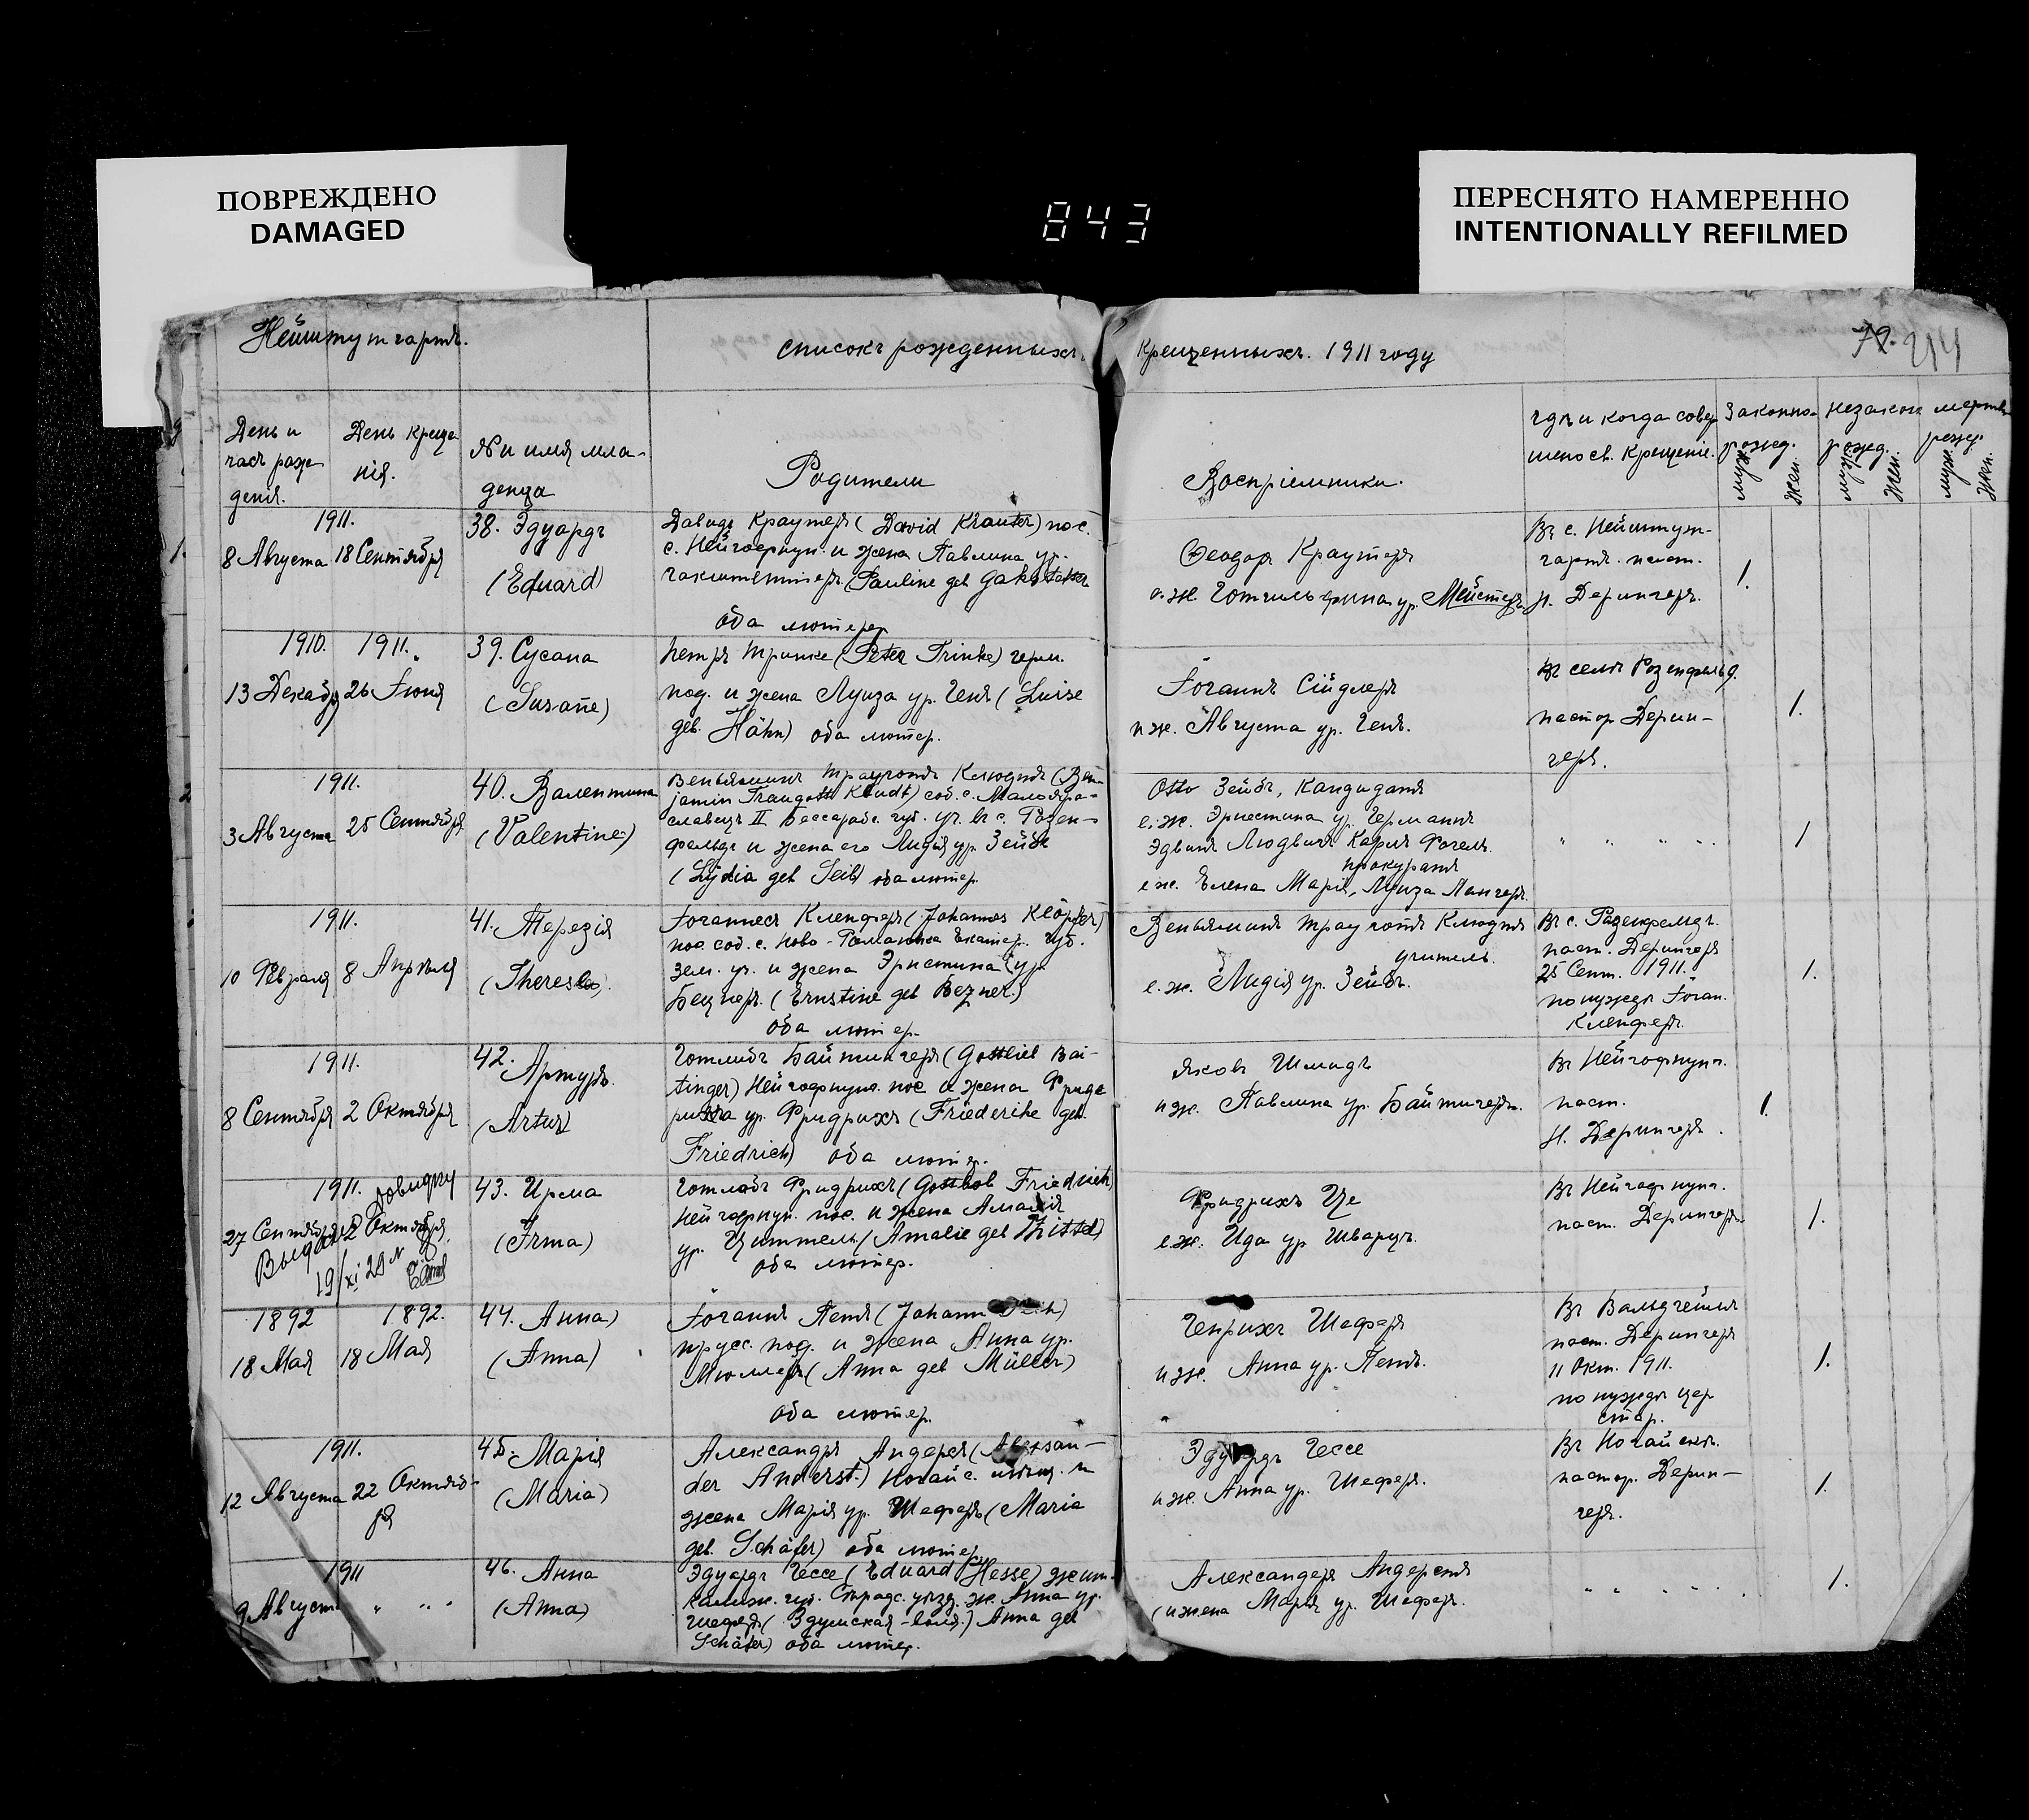 ПОВРЕЖДЕНО
DAMAGED
843
ПЕРЕСНЯТО НАМЕРЕННО
INTENTIONALLY REFILMED
Нейштутгартъ.
списокъ рожденныхъ,
Крещенныхъ. 1911 году
79. 244
День и
часъ рож-
денія.
День креще-
нія.
№ и имя мла-
денца
Родители
Воспріемники.
гдѣ и когда совер
шено св. Крещеніе.
Законно-
рожд.
муж.
жен.
незакон
рожд.
муж.
жен.
мертв
рожд.
муж.
жен.
1911.
8 Августа 18 Сентября
38. Эдуардъ
(Eduard)
Давидъ Краутеръ (David Krauter) пос.
с. Нейгофнун. и жена Павлина ур.
(Pauline geb
оба лютер.
Феодоръ Краутеръ
и ж. Готильфина ур. Мейстеръ
Въ с. Нейштут-
гартъ. паст.
н. Дерингеръ.
1.
1910. 1911.
13 Декабр 26 Іюня
39. Сусана
(Susañe)
Петръ Тринке (Peter Trinke) герм.
под. и жена Луиза ур. Генъ (Luise
geb. Hähn) оба лютер.
Іоганнъ Сійдлеръ
и ж. Августа ур. Генъ.
Въ селѣ Розенфельд.
пастор Дерин-
геръ.
1.
1911.
3 Августа 25 Сентября
40. Валентина
(Valentine)
Веньяминъ Трауготъ Клюдтъ (Ben-
jamin Traugott Kludt) соб. с. Малояро-
славецъ II Бессараб. губ. уч. въ с. Розен-
фельдъ и жена его Лидія ур. Зейбъ
(Lydia geb Seib) оба лютер.
Otto Зейбъ, Кандидатъ
е. ж. Эрнестина ур. Германнъ
Эдвинъ Людвигъ Карлъ Фогель.
прокуратъ
е ж. Елена Марія, Луиза Лангеръ.
" " " "
1
1911.
10 Февраля 8 Апрѣля
41. Терезія
(Theresia).
Іоганнесъ Клепферъ (Johannes Klöpfer)
пос. соб. с. Ново-Романовка Екатер. губ.
зем. уч. и жена Эрнстина (ур.
Бецнеръ. (Ernstine geb Bezner.)
оба лютер.
Веньяминъ Трауготъ Клюдтъ
учитель.
е. ж. Лидія ур. Зейбъ.
Въ с. Розенфельдъ.
паст. Дерингеръ
25 Сент. 1911.
по нуждѣ Іоган.
Клепферъ.
1.
1911.
8 Сентября 2 Октября
42. Артуръ.
(Artur)
Готлибъ Байтингеръ (Gottlieb Bai-
tinger) Нейгофнунг. пос и жена Фриде
рика ур. Фридрихъ (Friederike geb.
Friedrich) оба лютер.
Яковъ Шмидъ
и ж. Павлина ур. Байтигеръ.
Въ Нейгофнунг.
паст.
н. Дерингеръ.
1.
1911. довидку
27 Сентября 2 Октября
19/XI 29
43. Ирма
(Irma)
Готлобъ Фридрихъ (Gottlob Friedrich)
Нейгофнун. пос. и жена Амалія
ур. Циттель (Amalie geb Zittel)
оба лютер.
Фридрихъ Це
е. ж. Ида ур Шварцъ.
Въ Нейгофнунг.
паст. Дерингеръ.
1.
1892 1892.
18 Мая 18 Мая
44. Анна)
(Anna)
Іоганнъ Петъ (Johann
прусс. под. и жена Анна ур.
Мюллеръ (Anna geb Müller)
оба лютер.
Генрихъ Шеферъ
и ж. Анна ур. Петъ.
Въ Вальдгеймъ
паст. Дерингеръ
11 Окт. 1911.
по нуждѣ цер
стар.
1.
1911.
12 Августа 22 Октяб-
ря
45. Марія
(Maria)
Александръ Андерстъ (Alexsan-
der Anderst.) Ногайс. и
жена Марія ур. Шеферъ (Maria
geb. Schäfer) оба лютер.
Эдуардъ Гессе
и ж. Анна ур. Шеферъ.
Въ Ногайскъ.
пастор. Дерин-
геръ.
1.
1911
9 Августа " " "
46. Анна
(Anna)
Эдуардъ Гессе (Eduard Hesse) жит.
Калиж. губ. Сѣрадс. уѣзд. ж. Анна ур.
Шеферъ (Здунская-воля.) Anna geb
Schäfer) оба лютер.
Александеръ Андерстъ
(и жена Марія ур. Шеферъ.
" " " "
1.